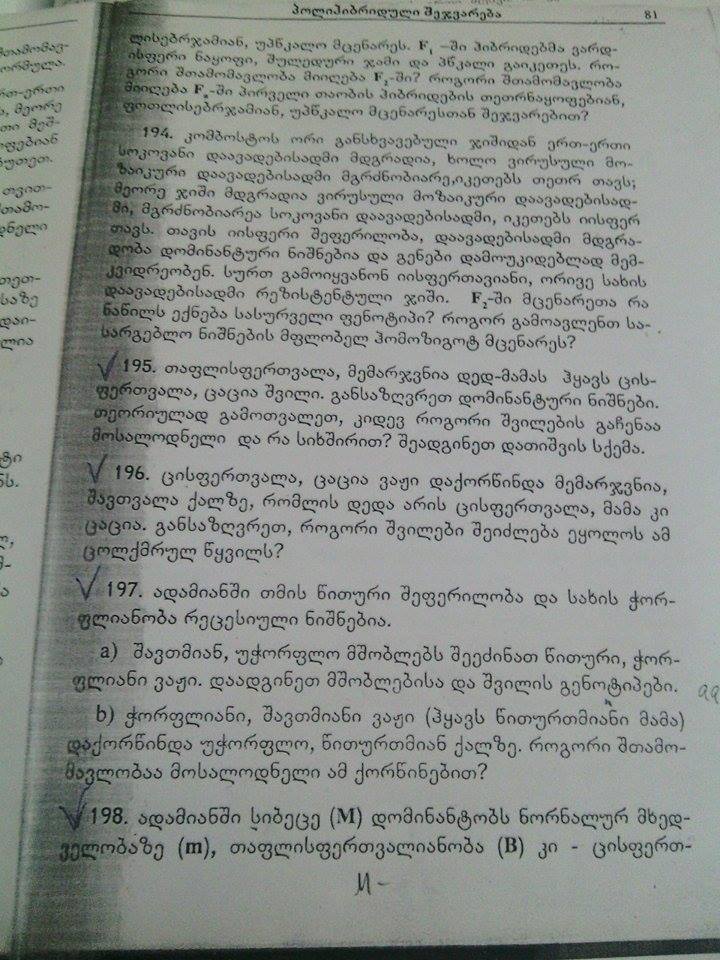 პოლიჰიბრიდული შეჯვარება 81
ლისებრჯამიან, უპწკალო მცენარეს. F₁ –ში ჰიბრიდებმა ვარდ-
ისფერი ნაყოფი, შულედური ჯამი და პწკალი გაიკეთეს. რო-
გორი შთამომავლობა მიიღება F₂-ში? როგორი შთამომავლობა
მიიღება Fₐ-ში პირველი თაობის ჰიბრიდების თეთრნაყოფებიან,
ფოთლისებრჯამიან, უპწკალო მცენარესთან შეჯვარებით?
194. კომბოსტოს ორი განსხვავებული ჯიშიდან ერთ-ერთი
სოკოვანი დაავადებისადმი მდგრადია, ხოლო ვირუსული მო-
ზაიკური დაავადებისადმი მგრძნობიარე,იკეთებს თეთრ თავს;
მეორე ჯიში მდგრადია ვირუსული მოზაიკური დაავადებისად-
მი, მგრძნობიარეა სოკოვანი დაავადებისადმი, იკეთებს იისფერ
თავს. თავის იისფერი შეფერილობა, დაავადებისადმი მდგრა-
დობა დომინანტური ნიშნებია და გენები დამოუკიდებლად მემ-
კვიდრეობენ. სურთ გამოიყვანონ იისფერთავიანი, ორივე სახის
დაავადებისადმი რეზისტენტული ჯიში. F₂-ში მცენარეთა რა
ნაწილს ექნება სასურველი ფენოტიპი? როგორ გამოავლენთ სა-
სარგებლო ნიშნების მფლობელ ჰომოზიგოტ მცენარეს?
195. თაფლისფერთვალა, მემარჯვნია დედ-მამას ჰყავს ცის-
ფერთვალა, ცაცია შვილი. განსაზღვრეთ დომინანტური ნიშნები.
თეორიულად გამოთვალეთ, კიდევ როგორი შვილების გაჩენაა
მოსალოდნელი და რა სიხშირით? შეადგინეთ დათიშვის სქემა.
196. ცისფერთვალა, ცაცია ვაჟი დაქორწინდა მემარჯვნია,
შავთვალა ქალზე, რომლის დედა არის ცისფერთვალა, მამა კი
ცაცია. განსაზღვრეთ, როგორი შვილები შეიძლება ეყოლოს ამ
ცოლქმრულ წყვილს?
197. ადამიანში თმის წითური შეფერილობა და სახის ჭორ-
ფლიანობა რეცესიული ნიშნებია.
a) შავთმიან, უჭორფლო მშობლებს შეეძინათ წითური, ჭორ-
ფლიანი ვაჟი. დაადგინეთ მშობლებისა და შვილის გენოტიპები.
b) ჭორფლიანი, შავთმიანი ვაჟი (ჰყავს წითურთმიანი მამა)
დაქორწინდა უჭორფლო, წითურთმიან ქალზე. როგორი შთამო-
მავლობაა მოსალოდნელი ამ ქორწინებით?
198. ადამიანში სიბეცე (M) დომინანტობს ნორნალურ მხედ-
ველობაზე (m), თაფლისფერთვალიანობა (B) კი - ცისფერთ-
M -